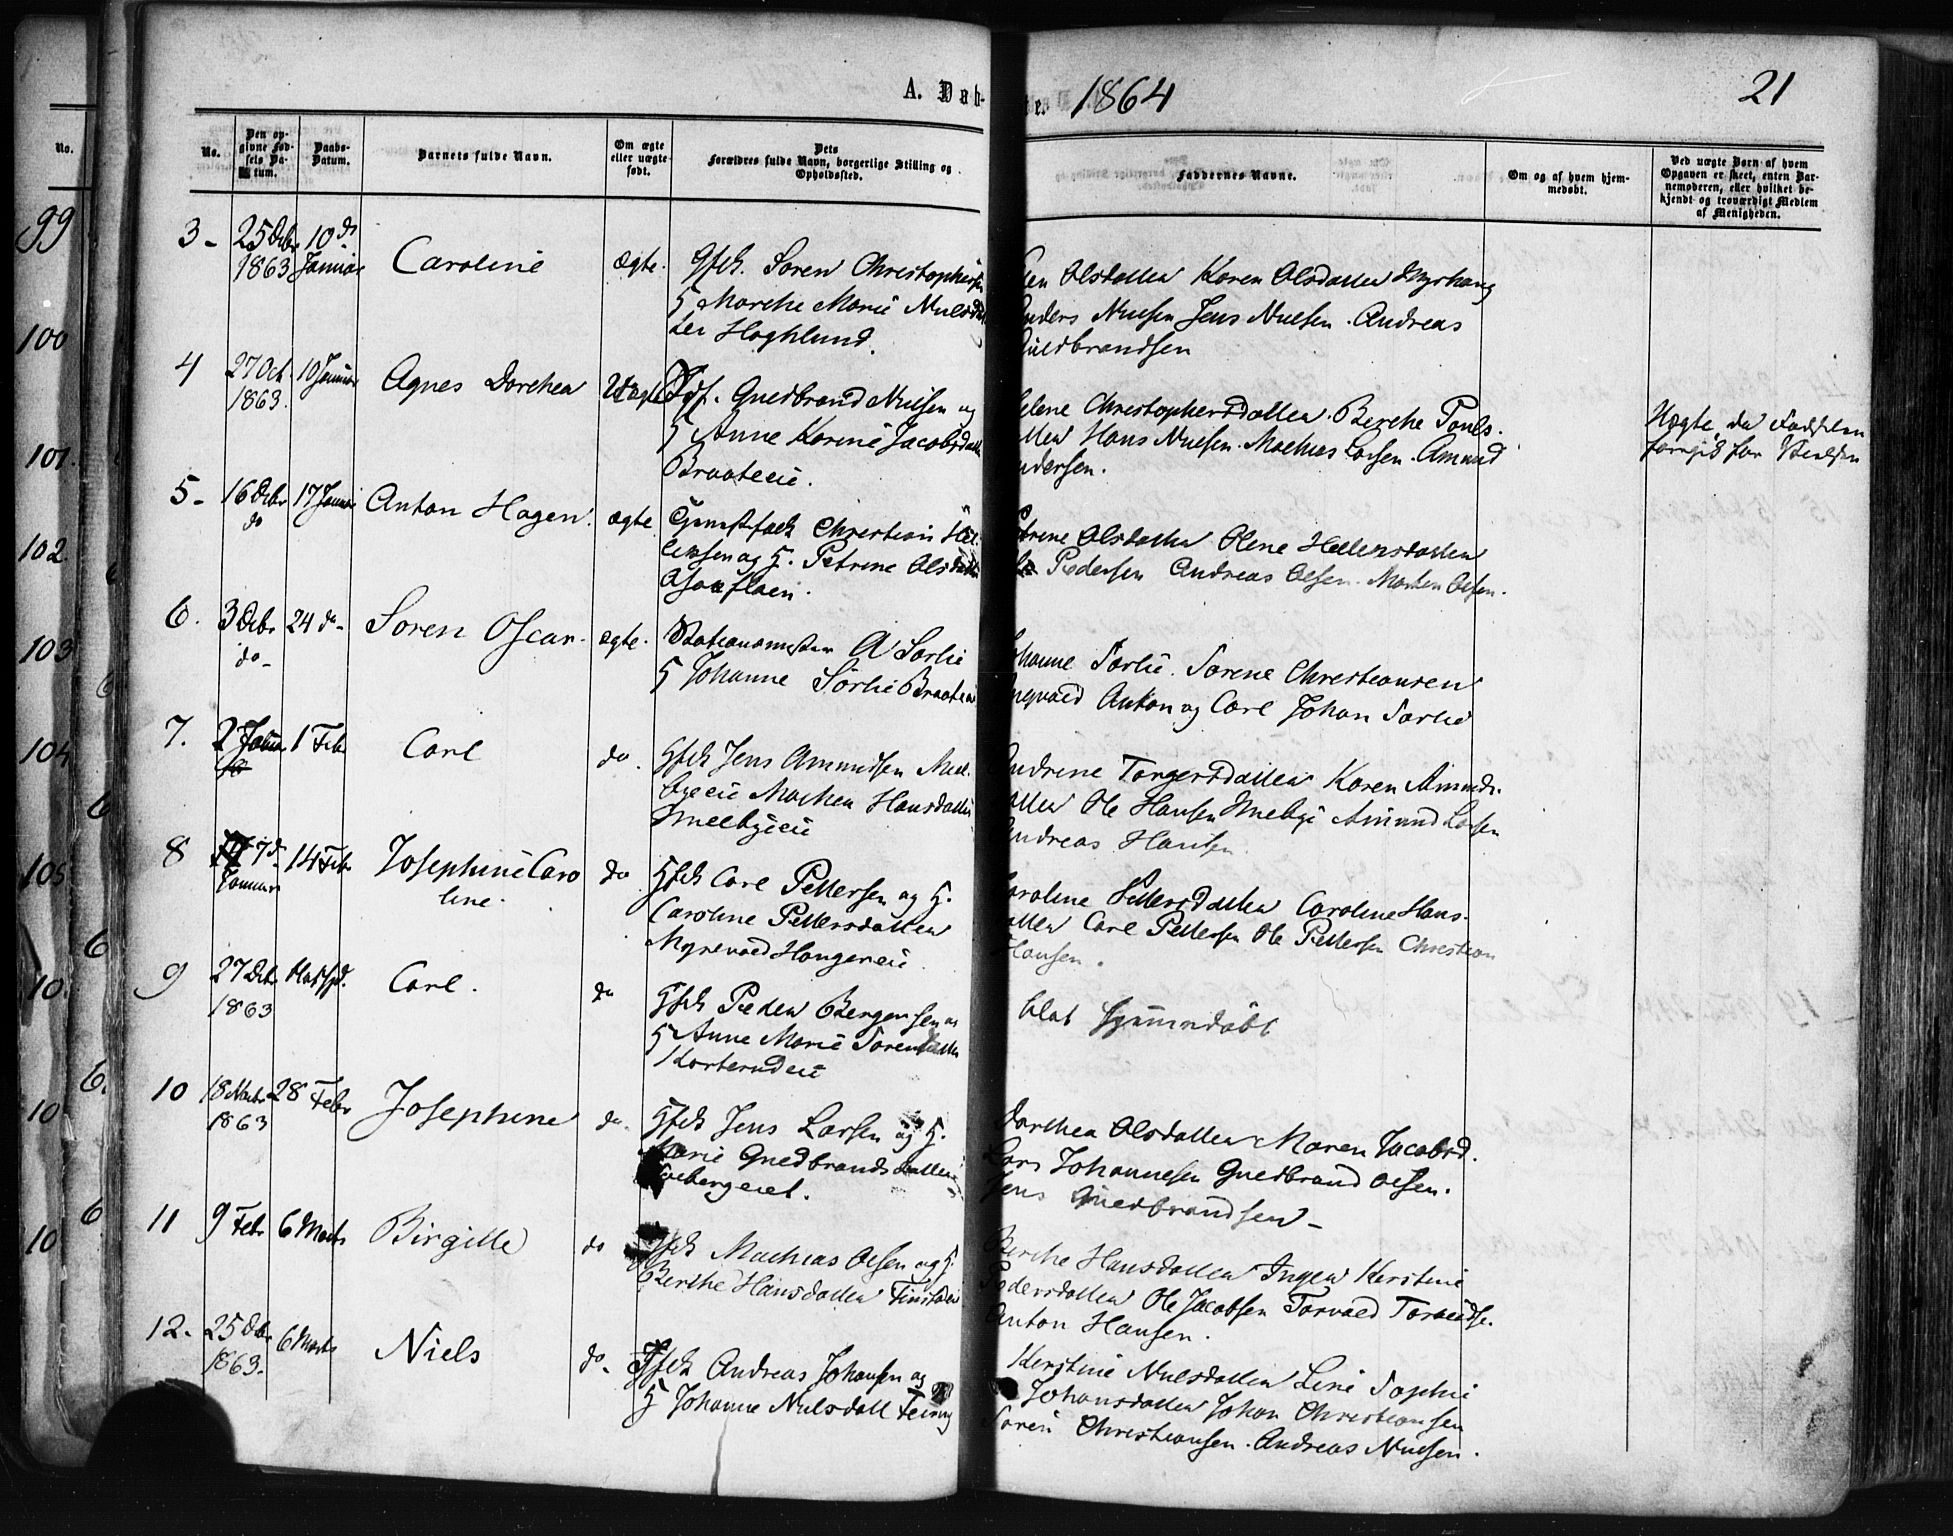 A. Døb-
te. 1864
21
No.
Den op-
givne Fød-
sels Da-
tum.
Daabs-
Datum.
Barnets fulde Navn.
Om ægte
eller uægte
født.
Dets
Forældres fulde Navn, borgerlige Stilling og
Opholdssted.
Faddernes Navne.
Om og af hvem hjem-
medøbt.
Ved uægte Børn af hvem
Opgaven er skeet, enten Bar-
nemoderen, eller hvilket be-
kjendt og troværdigt Medlem
af Menigheden.
No.
99
100
101.
102.
103
104
105
10.
10
10
3 -
25 Debr
1863
10 ds
Januar
Caroline
ægte.
Gfck. Soren Christophersen
Marthe Marie Nielsdat
ter Haghlund.
Olsdatter Karen Olsdatter Myrhaug
Anders Nielsen Jens Nielsen. Andreas
Guldbrandsen
4
27 Oct.
1863.
10 Januar
Agnes Dorthea
Uægte
Guldbrand Nielsen og
Anne Karine Jacobsdatt
Braateeie.
Helene Christophersdatter. Berthe Pouls-
datter Hans Nielsen. Mathias Larsen. Amund
Andersen.
Uægte da Fødselen
foregik før Vielsen
5 -
16 Debr
do
17 Januar
Anton Hagen.
ægte
Christian Hel-
lersen og H. Petrine Olsdatter
Petrine Olsdatter Olene Hellersdatter
Pedersen Andreas Olsen. Morten Olsen.
6.
3 Debr
do -
24 do -
Soren Oscar -
ægte.
Stationsmester A Sorlie
H Johanne Sorlie Braateeie
Johanne Sorlie. Sorene Christiansen
Ingvald Anton og Carl Johan Sorlie
7.
2 Januar
1 Febr
Carl
do.
Gfck Jens Amundsen Mel-
byeeie Mathea Hansdatter
Smelbyeeie
Andrine Torgersdatter Karen Amunds-
datter Ole Hansen Smelbye Amund Larsen
Andreas Hansen
8
7 d.
Januar
14 Febr
Josephine Caro
line.
do
Gfck Carl Pettersen og H.
Caroline Pettersdatter
Myrevold Haugereie
Caroline Pettersdatter Caroline Hans-
datter Carl Pettersen Ole Pettersen Christian
Hansen.
9
27 Debr
1863
blot hjd.
Carl.
do
Gfck Peder Bergersen og
H Anne Marie Sorensdatter
Korterudeie
blot hjemmedøbt
10
18 Novbr
1863
28 Febr
Josephine
do.
Gfck Jens Larsen og H.
Marie Guldbrandsdatter
Dorthea Olsdatter Maren Jacobsd.
Lars Johannesen Guldbrand Olsen.
Jens Guldbrandsen -
11
9 Febr
6 Marts
Birgitte
do
Gfck Mathias Olsen og H.
Berthe Hansdatter
Berthe Hansdatter Inger Kirstine
Pedersdatter Ole Jacobsen Torvald Torvaldse.
Anton Hansen.
12.
25 Debr
1863.
6 Marts
Niels
do -
Gfck Andreas Johansen og
H Johanne Nielsdatt Feiring
Kirstine Nielsdatter Line Sophie
Johansdatter Johan Christiansen
Soren Christiansen. Andreas Nielsen.